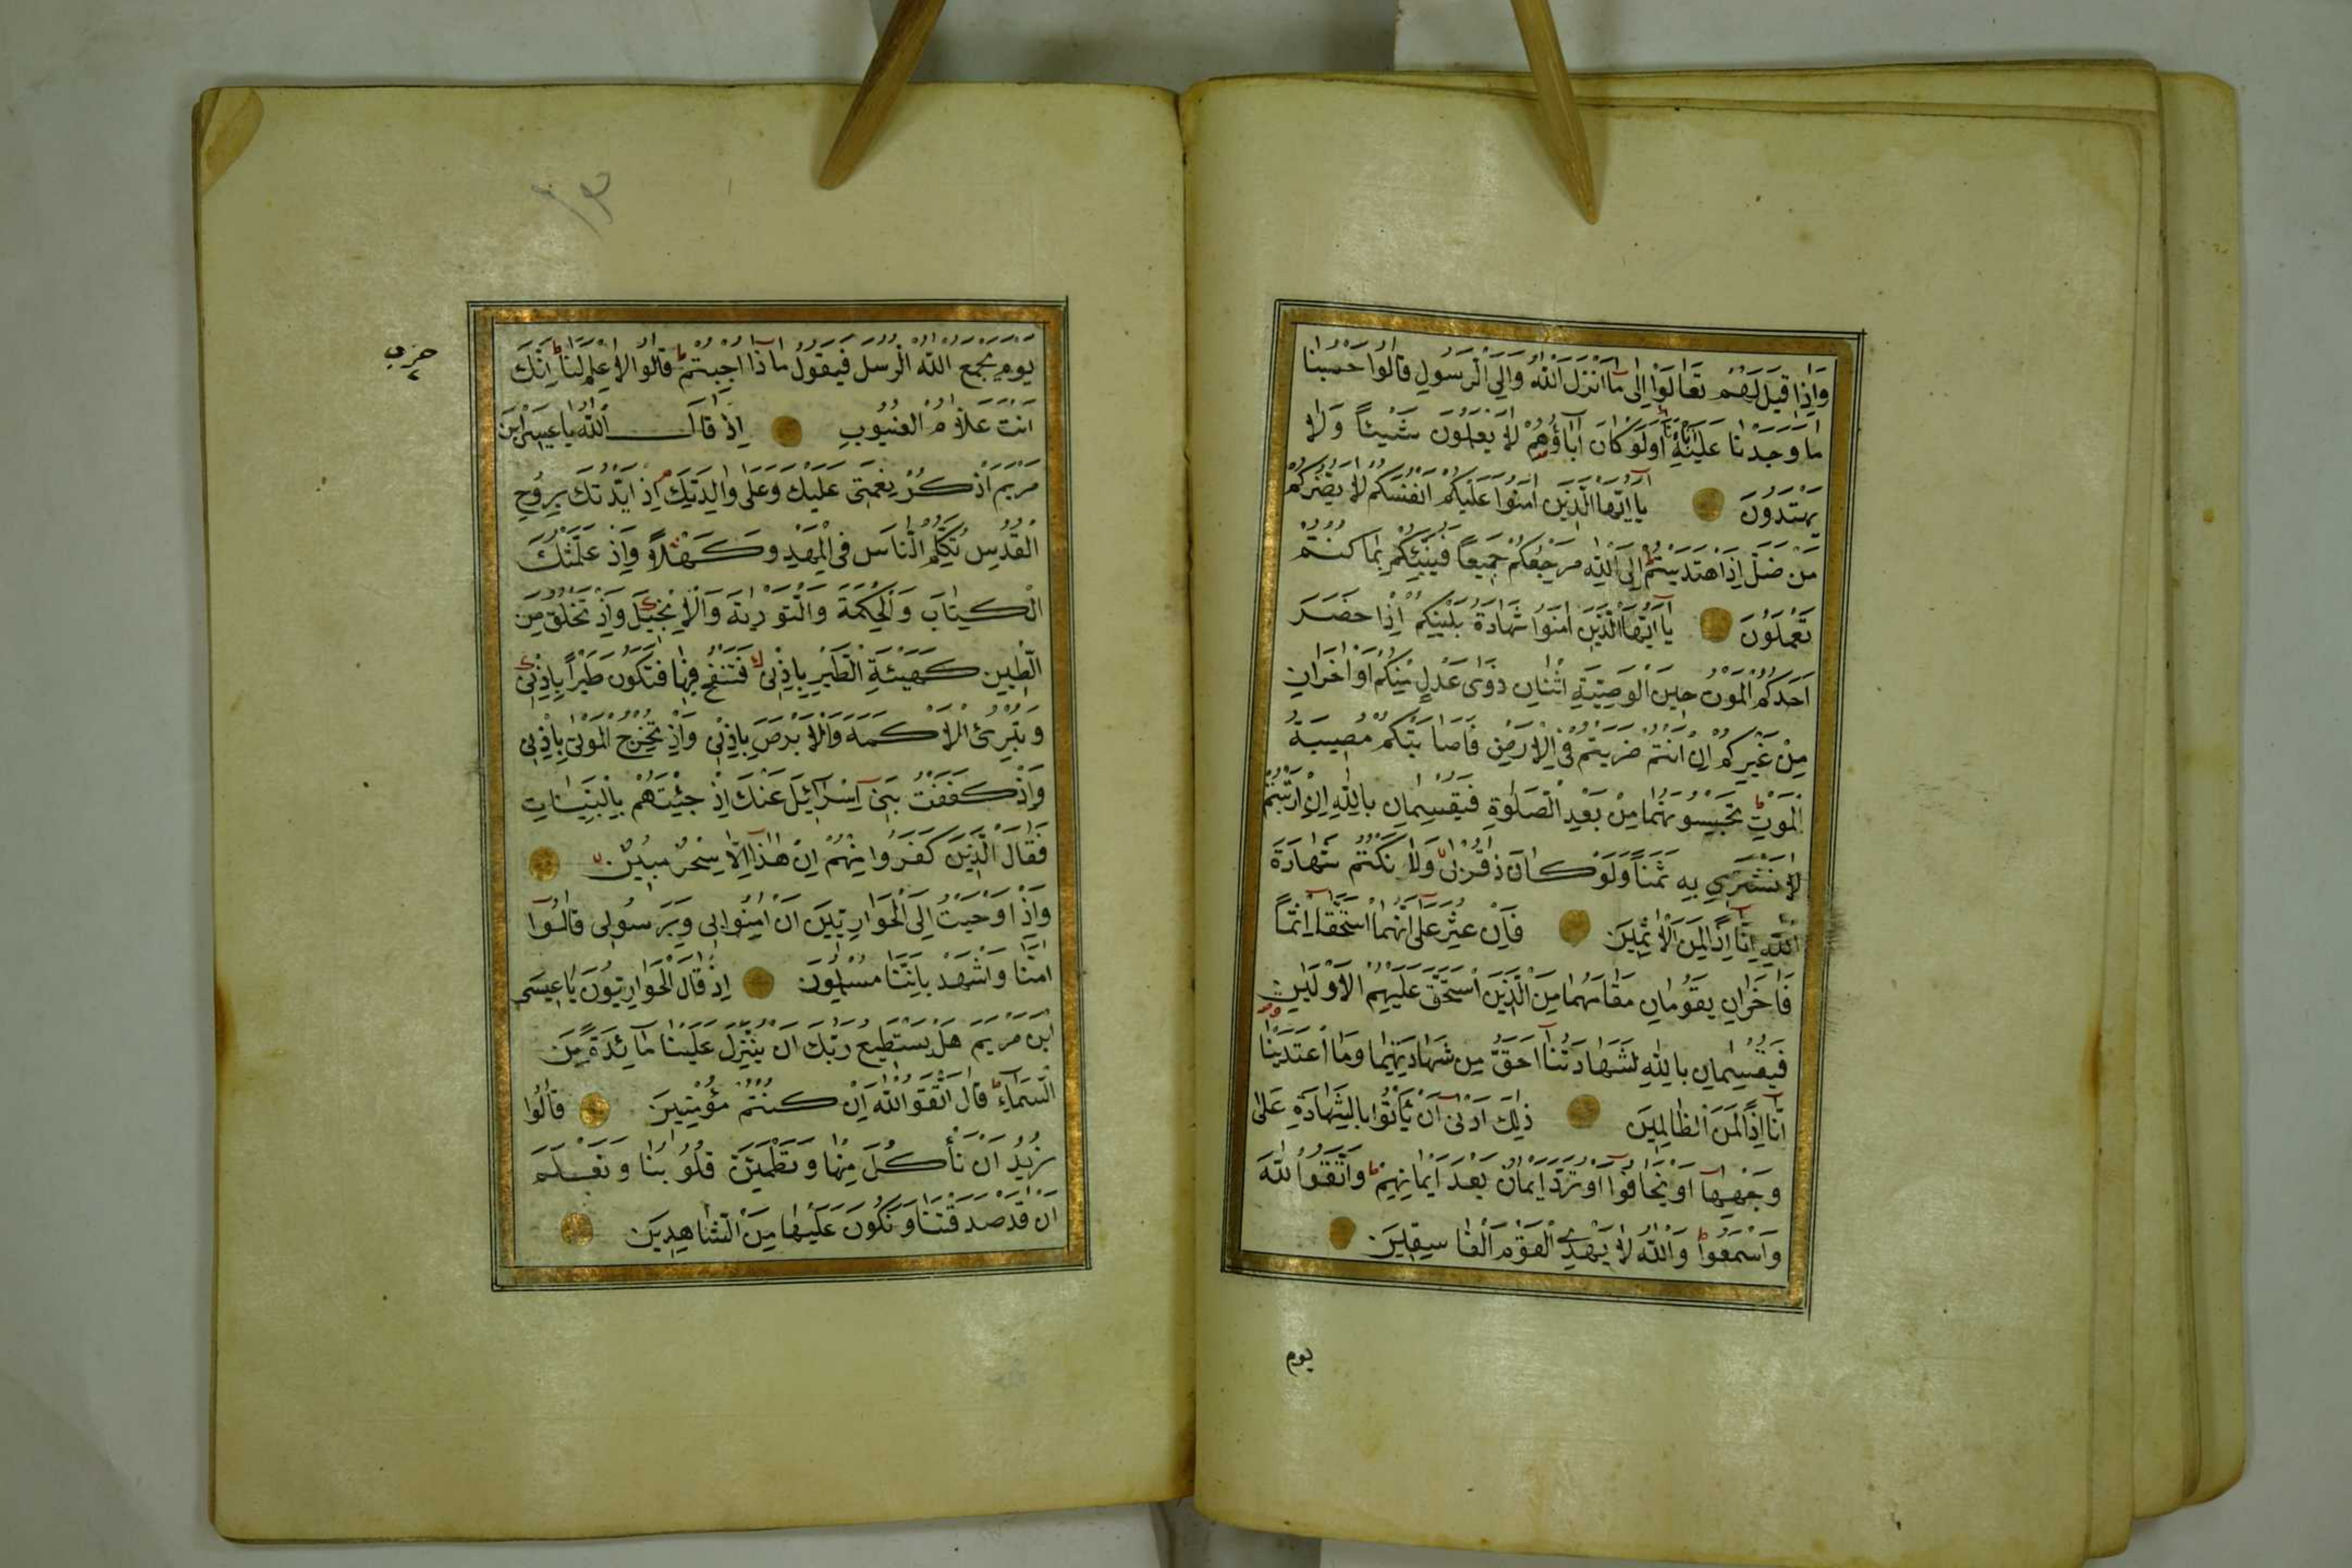 وَاِذَا قِيلَ لَهُمْ تَعَالَوْا اِلٰى مَا اَنْزَلَ اللّٰهُ وَاِلَى الرَّسُولِ قَالُوا حَسْبُنَا
مَا وَجَدْنَا عَلَيْهِ اٰبَاءَنَا اَوَلَوْ كَانَ اٰبَاؤُهُمْ لَا يَعْلَمُونَ شَيْئًا وَلَا
يَهْتَدُونَ يَا اَيُّهَا الَّذِينَ اٰمَنُوا عَلَيْكُمْ اَنْفُسَكُمْ لَا يَضُرُّكُمْ
مَنْ ضَلَّ اِذَا اهْتَدَيْتُمْ اِلَى اللّٰهِ مَرْجِعُكُمْ جَمِيعًا فَيُنَبِّئُكُمْ بِمَا كُنْتُمْ
تَعْمَلُونَ يَا اَيُّهَا الَّذِينَ اٰمَنُوا شَهَادَةُ بَيْنِكُمْ اِذَا حَضَرَ
اَحَدَكُمُ الْمَوْتُ حِينَ الْوَصِيَّةِ اثْنَانِ ذَوَا عَدْلٍ مِنْكُمْ اَوْ اٰخَرَانِ
مِنْ غَيْرِكُمْ اِنْ اَنْتُمْ ضَرَبْتُمْ فِي الْاَرْضِ فَاَصَابَتْكُمْ مُصِيبَةُ
الْمَوْتِ تَحْبِسُونَهُمَا مِنْ بَعْدِ الصَّلٰوةِ فَيُقْسِمَانِ بِاللّٰهِ اِنِ ارْتَبْتُمْ
لَا نَشْتَرِي بِهِ ثَمَنًا وَلَوْ كَانَ ذَا قُرْبٰى وَلَا نَكْتُمُ شَهَادَةَ
اللّٰهِ اِنَّا اِذًا لَمِنَ الْاٰثِمِينَ فَاِنْ عُثِرَ عَلٰى اَنَّهُمَا اسْتَحَقَّا اِثْمًا
فَاٰخَرَانِ يَقُومَانِ مَقَامَهُمَا مِنَ الَّذِينَ اسْتَحَقَّ عَلَيْهِمُ الْاَوْلَيَانِ
فَيُقْسِمَانِ بِاللّٰهِ لَشَهَادَتُنَا اَحَقُّ مِنْ شَهَادَتِهِمَا وَمَا اعْتَدَيْنَا
اِنَّا اِذًا لَمِنَ الظَّالِمِينَ ذٰلِكَ اَدْنٰى اَنْ يَأْتُوا بِالشَّهَادَةِ عَلٰى
وَجْهِهَا اَوْ يَخَافُوا اَوْ تُرَدَّ اَيْمَانٌ بَعْدَ اَيْمَانِهِمْ وَاتَّقُوا اللّٰهَ
وَاسْمَعُوا وَاللّٰهُ لَا يَهْدِي الْقَوْمَ الْفَاسِقِينَ
يوم
حزب
يَوْمَ يَجْمَعُ اللّٰهُ الرُّسُلَ فَيَقُولُ مَاذَا اُجِبْتُمْ قَالُوا لَا عِلْمَ لَنَا اِنَّكَ
اَنْتَ عَلَّامُ الْغُيُوبِ اِذْ قَالَ اللّٰهُ يَا عِيسَى ابْنَ
مَرْيَمَ اذْكُرْ نِعْمَتِي عَلَيْكَ وَعَلٰى وَالِدَتِكَ اِذْ اَيَّدْتُكَ بِرُوحِ
الْقُدُسِ تُكَلِّمُ النَّاسَ فِي الْمَهْدِ وَكَهْلًا وَاِذْ عَلَّمْتُكَ
الْكِتَابَ وَالْحِكْمَةَ وَالتَّوْرٰيةَ وَالْاِنْجِيلَ وَاِذْ تَخْلُقُ مِنَ
الطِّينِ كَهَيْئَةِ الطَّيْرِ بِاِذْنِي فَتَنْفُخُ فِيهَا فَتَكُونُ طَيْرًا بِاِذْنِي
وَتُبْرِئُ الْاَكْمَهَ وَالْاَبْرَصَ بِاِذْنِي وَاِذْ تُخْرِجُ الْمَوْتٰى بِاِذْنِي
وَاِذْ كَفَفْتُ بَنِي اِسْرَائِيلَ عَنْكَ اِذْ جِئْتَهُمْ بِالْبَيِّنَاتِ
فَقَالَ الَّذِينَ كَفَرُوا مِنْهُمْ اِنْ هٰذَا اِلَّا سِحْرٌ مُبِينٌ
وَاِذْ اَوْحَيْتُ اِلَى الْحَوَارِيِّينَ اَنْ اٰمِنُوا بِي وَبِرَسُولِي قَالُوا
اٰمَنَّا وَاشْهَدْ بِاَنَّنَا مُسْلِمُونَ اِذْ قَالَ الْحَوَارِيُّونَ يَا عِيسَى
ابْنَ مَرْيَمَ هَلْ يَسْتَطِيعُ رَبُّكَ اَنْ يُنَزِّلَ عَلَيْنَا مَائِدَةً مِنَ
السَّمَاءِ قَالَ اتَّقُوا اللّٰهَ اِنْ كُنْتُمْ مُؤْمِنِينَ قَالُوا
نُرِيدُ اَنْ نَأْكُلَ مِنْهَا وَتَطْمَئِنَّ قُلُوبُنَا وَنَعْلَمَ
اَنْ قَدْ صَدَقْتَنَا وَنَكُونَ عَلَيْهَا مِنَ الشَّاهِدِينَ